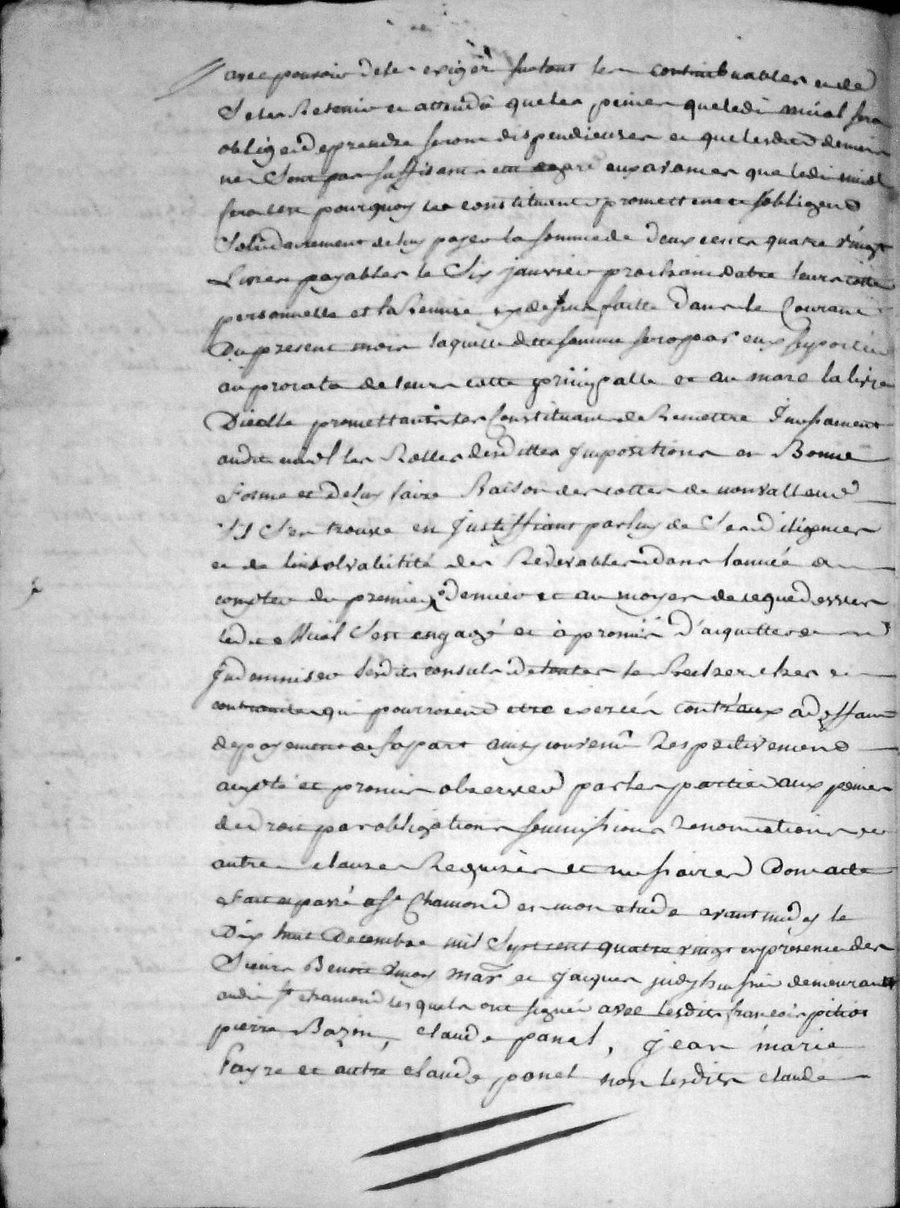 avec pouvoir de les exiger sur tout les contribuables et de
Se les Retenir et attendû que les peines que ledi mial sera
obligé de prendre seront dispendieuses et que lesdits deniers
ne Sont pas suffisants aux avances que ledi mial
fera cest pourquoy les constituants promettent et sobligent
Solidairement de luy payer la somme de deux cents quatre vingt
Livres payables le Six janvier prochain outre leurs cottes
personnelle et la Remise cy dessus faitte Dans le Courant
Du present mois laquelle ditte somme sera par eux supportée
au prorata de leurs cotte principalle et au marc la livre
Dicelle promettants les Constituants de Remettre Incessament
audit mial les Rolles desdittes Impositions en Bonne
forme et de luy faire Raison des cottes de nonvalleurs
Sil Sen trouve en Justiffiant par luy de Ses diligences
et de linsolvabilité des Redevables dans lannée a
compter du premier Denier et au moyen de ce que dessus
ledit Mial Sest engagé et à promis D'acquitter et
Indemniser lesdits consuls de toutes les Recherches et
contraintes qui pourroient etre exercées contr'aux a deffaut
de payement de sa part ainsy convenu Respectivement
accepté et promis observer par les parties aux peines
de droit par obligations soumissions Renonciations et
autres clauses Requises et necessaires Dont acte
fait et passé a St Chamond en mon etude avant midy le
Dix huit Decembre mil Sept cent quatre vingt en presence des
Sieurs Benoit md et Jacques demeurants
audit St chamond lesquels ont signé avec lesdits françois pitiot
pierre Bazin, claude panel, jean marie
fayre et autre claude panel non lesdits claude